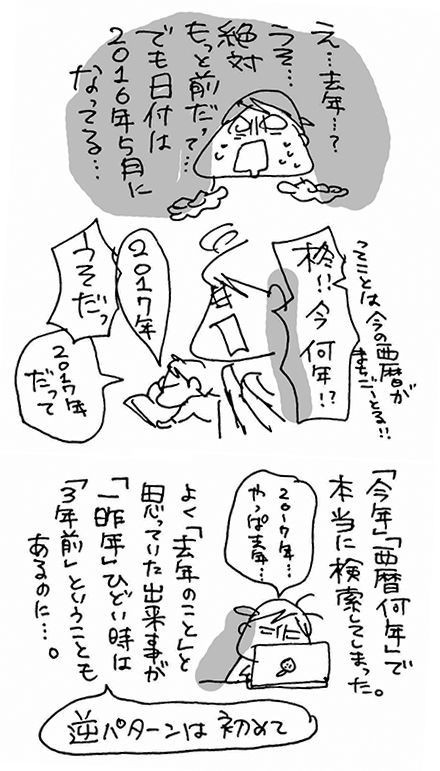 え…去年…?
うそ…
絶対
もっと前だって…
でも日付は
2016年5月に
なってる…
つことは今の西暦が
まちごーとる!!
柊!!今何年!?
2017年
うそだっ
2017年
だって
「今年」「西暦何年」で
本当に検索してしまった。
2017年…
やっぱ去年…
よく「去年のこと」と
思っていた出来事が
「一昨年」ひどい時は
「3年前」ということも
あるのに…。
逆パターンは初めて